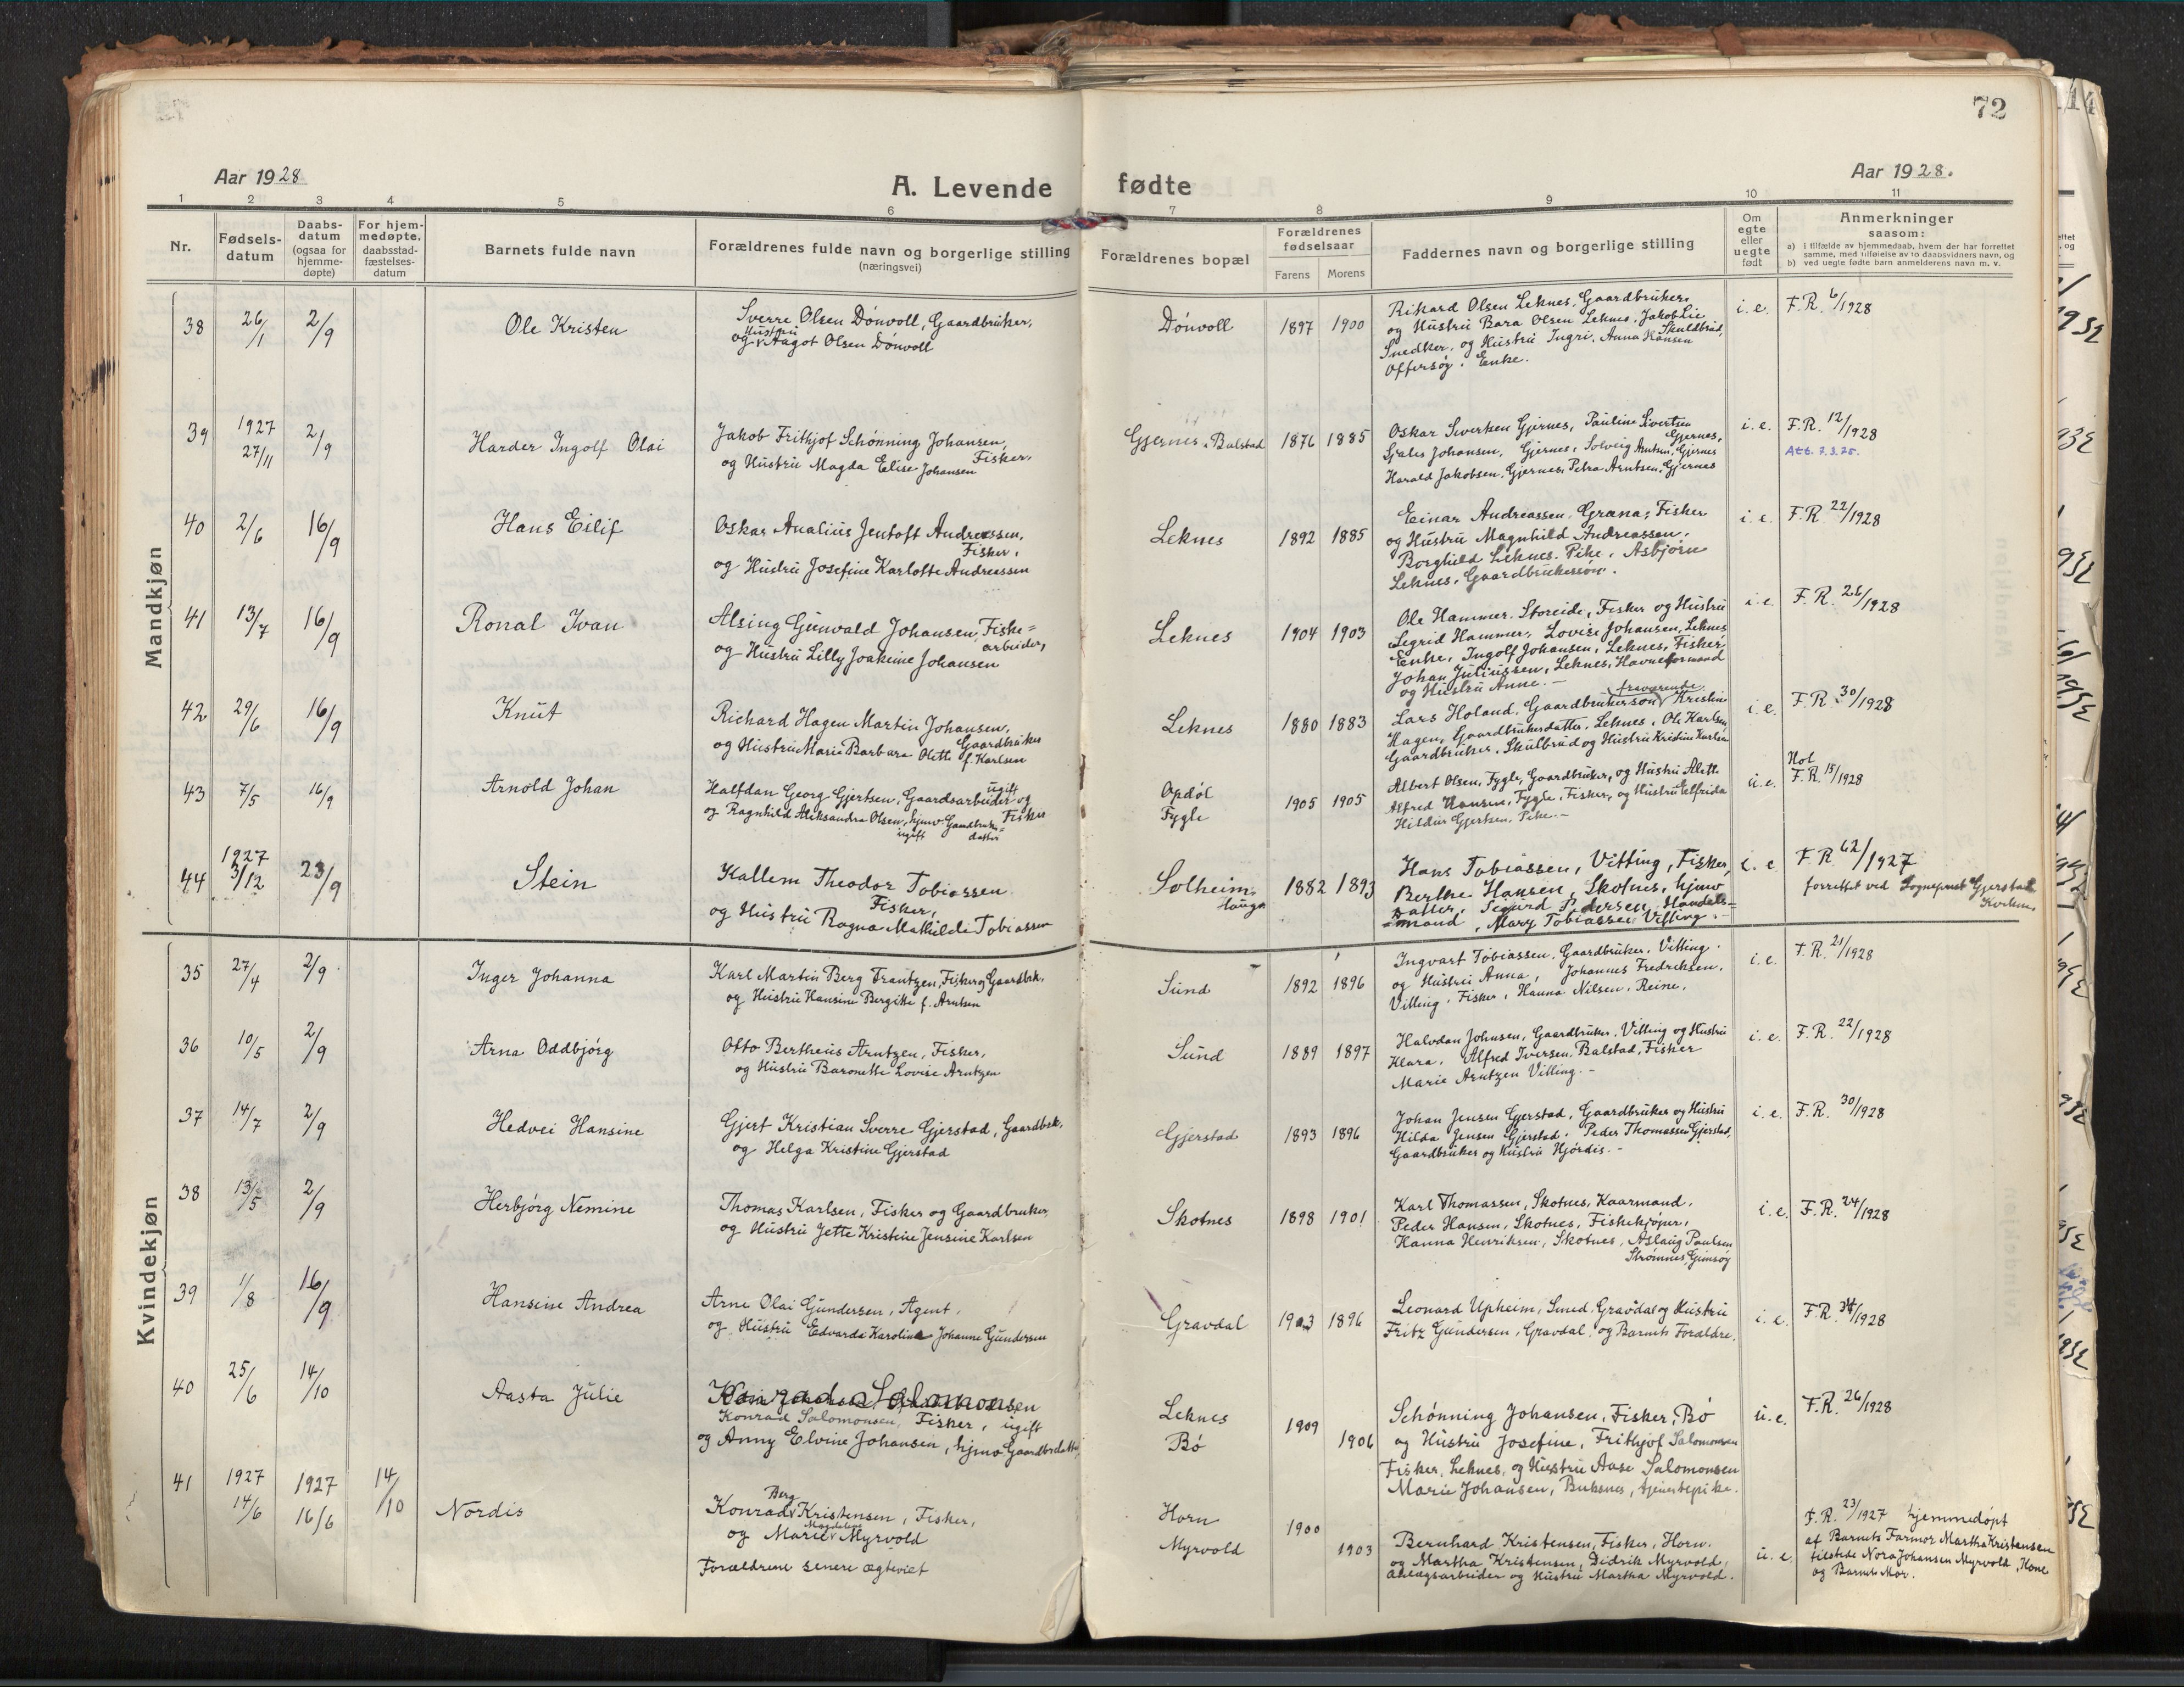 72
Aar 1928
A. Levende fødte
Aar 1928.
1 2 3 4 5 6 7 8 9 10 11
Nr.
Fødsels-
datum
Daabs-
datum
(ogsaa for
hjemme-
døpte)
For hjem-
medøpte,
daabsstad-
fæstelses-
datum
Barnets fulde navn
Forældrenes fulde navn og borgerlige stilling
(næringsvei)
Forældrenes bopæl
Forældrenes
fødselsaar
Farens Morens
Faddernes navn og borgerlige stilling
Om
egte
eller
uegte
født
Anmerkninger
saasom:
a) i tilfælde av hjemmedaab, hvem der har forrettet
samme, med tilføielse av to daabsvidners navn, og
b) ved uegte fødte barn anmelderens navn m. v.
Mandkjøn
38 26/1 2/9 Ole Kristen
Sverre Olsen Dönvoll, Gaardbruker,
og Hustru Aagot Olsen Dönvoll
Dönvoll 1897 1900
Rikard Olsen Leknes, Gaardbruker,
og Hustru Bara Olsen Leknes, Jakob Lie
Snedker, Skuldbrud, og Hustru Ingri, Anna Hansen
Offersøy. Enke.
i. e. F.R. 6/1928
39 1927 27/11 2/9 Harder Ingolf Olai
Jakob Frithjof Schönning Johansen,
Fisker,
og Hustru Magda Elise Johansen
Gjernes, Balstad 1876 1885
Oskar Sivertsen Gjernes, Pauline Sivertsen
Gjernes,
Johansen, Gjernes, Solveig Arntsen, Gjernes
Harald Jakobsen, Gjernes, Petra Arntsen, Gjernes
i. e. F.R. 12/1928
Att. 7.3.75.
40 2/6 16/9 Hans Eilif
Oskar Analius Jentoft Andreassen,
Fisker,
og Hustru Josefine Karlotte Andreassen
Leknes 1892 1885
Einar Andreassen, Fisker
og Hustru Magnhild Andreassen,
Borghild Leknes, Pike, Asbjörn
Leknes, Gaardbrukersön.
i. e. F.R. 22/1928
41 13/7 16/9 Ronal Ivan
Alsing Gunvald Johansen, Fiske=
arbeider,
og Hustru Lilly Joakime Johansen
Leknes 1904 1903
Ole Hammer, Storeide, Fisker og Hustru
Segrid Hammer, Lovise Johansen, Leknes
Enke, Ingolf Johansen, Leknes, Fisker,
Johan Juliussen, Leknes, Havneformand
og Hustru Anne.-
i. e. F.R. 26/1928
42 29/6 16/9 Knut
Richard Hagen Martin Johansen,
Gaardbruker
og Hustru Maria Barbara Olette f. Karlsen
Leknes 1880 1883
fraværende
Lars Holand, Gaardbrukersön, Kristine
Hagen, Gaardbrukerdatter, Leknes, Ole Karlsen,
Gaardbruker, Skulbrud og Hustru Kristine Karlsen
i. e. F.R. 30/1928
43 7/5 16/9 Arnold Johan
ugift
Halfdan Georg Gjertsen, Gaardsarbeider og
Fisker
og Ragnhild Aleksandra Olsen, hjmv. Gaardbruker=
ugift datter
Opdöl
Fygle
1905 1905
Albert Olsen, Fygle, Gaardbruker, og Hustru Alette
Alfred Hansen, Fygle, Fisker, og Hustru Elfrida
Hildur Gjertsen, Pike.-
u. e. Hol
F.R. 15/1928
44 1927 3/12 23/9 Stein
Kallem Theodor Tobiassen
Fisker,
og Hustru Ragna Mathilde Tobiassen
Solheim,
Haugen
1882 1893
Hans Tobiassen, Vitting, Fisker,
Berthe Hansen, Skotnes, hjmv
Datter, Sigurd Pedersen, Handels=
=mand, Mary Tobiassen Vitting.-
i. e. F.R. 62/1927
forrettet ved Sogneprest Gjerstad

Kvindekjøn
35 27/4 2/9 Inger Johanna
Karl Martin Berg Frantzen, Fisker og Gaardbrk.
og Hustru Hansine Bergitte f. Arntsen
Sund 1892 1896
Ingvart Tobiassen, Gaardbruker, Vitting.
og Hustru Anna, Johannes Fredriksen,
Vitting, Fisker, Hanna Nilsen, Reine,
i. e. F.R. 21/1928
36 10/5 2/9 Arna Oddbjörg
Otto Bertheus Arntzen, Fisker,
og Hustru Baronette Lovise Arntzen
Sund 1889 1897
Halvdan Johnsen, Gaardbruker, Vitting og Hustru
Klara, Alfred Iversen, Balstad, Fisker
Marie Arntzen Vitting.-
i. e. F.R. 22/1928
37 14/7 2/9 Hedvei Hansine
Gjert Kristian Sverre Gjerstad, Gaardbrk.
og Helga Kristine Gjerstad
Gjerstad 1893 1896
Johan Jensen Gjerstad, Gaardbruker og Hustru
Hilda Jensen Gjerstad. Peder Thomassen Gjerstad,
Gaardbruker og Hustru Hjördis.-
i. e. F.R. 30/1928
38 13/5 2/9 Herbjörg Nemine
Thomas Karlsen, Fisker og Gaardbruker,
og Hustru Jette Kristine Jensine Karlsen
Skotnes 1898 1901
Karl Thomassen, Skotnes, Kaarmand.
Peder Hansen, Skotnes, Fiskekjöper,
Hanna Henriksen, Skotnes, Aslaug Paulsen
Strömnes, Gimsöy
i. e. F.R. 24/1928
39 1/8 16/9 Hansine Andrea
Arne Olai Gundersen, Agent,
og Hustru Edvarda Karoline Johanne Gundersen
Gravdal 1903 1896
Leonard Upheim, Smed, Gravdal og Hustru
Fritz Gundersen, Gravdal, og Barnets Forældre.
i. e. F.R. 34/1928
40 25/6 14/10 Aasta Julie
Konrad Salomonsen
Konrad Salomonsen, Fisker, ugift
og Anny Elvine Johansen, hjmv Gaardbrdatter,
Leknes
Bö
1909
1906
Schönning Johansen, Fisker, Bö
og Hustru Josefine, Frithjof Salomonsen
Fisker, Leknes, og Hustru Aase Salomonsen
Marie Johansen, Buksnes, tjenestepike.
u. e. F.R. 26/1928
41 1927 14/6 1927 16/6 14/10 Nordis
Berg
Konrad Kristensen, Fisker,
Magdalene
og Marie Myrvold
Forældrene senere ægteviet
Horn
Myrvold
1900
1903
Bernhard Kristensen, Fisker, Horn.
og Martha Kristensen, Didrik Myrvold,
anlægsarbeider og Hustru Martha Myrvold.
u. e. F.R. 23/1927 hjemmedöpt
af Barnets Farmor Martha Kristensen
tilstede Nora Johansen Myrvold, Kone
og Barnets Mor.